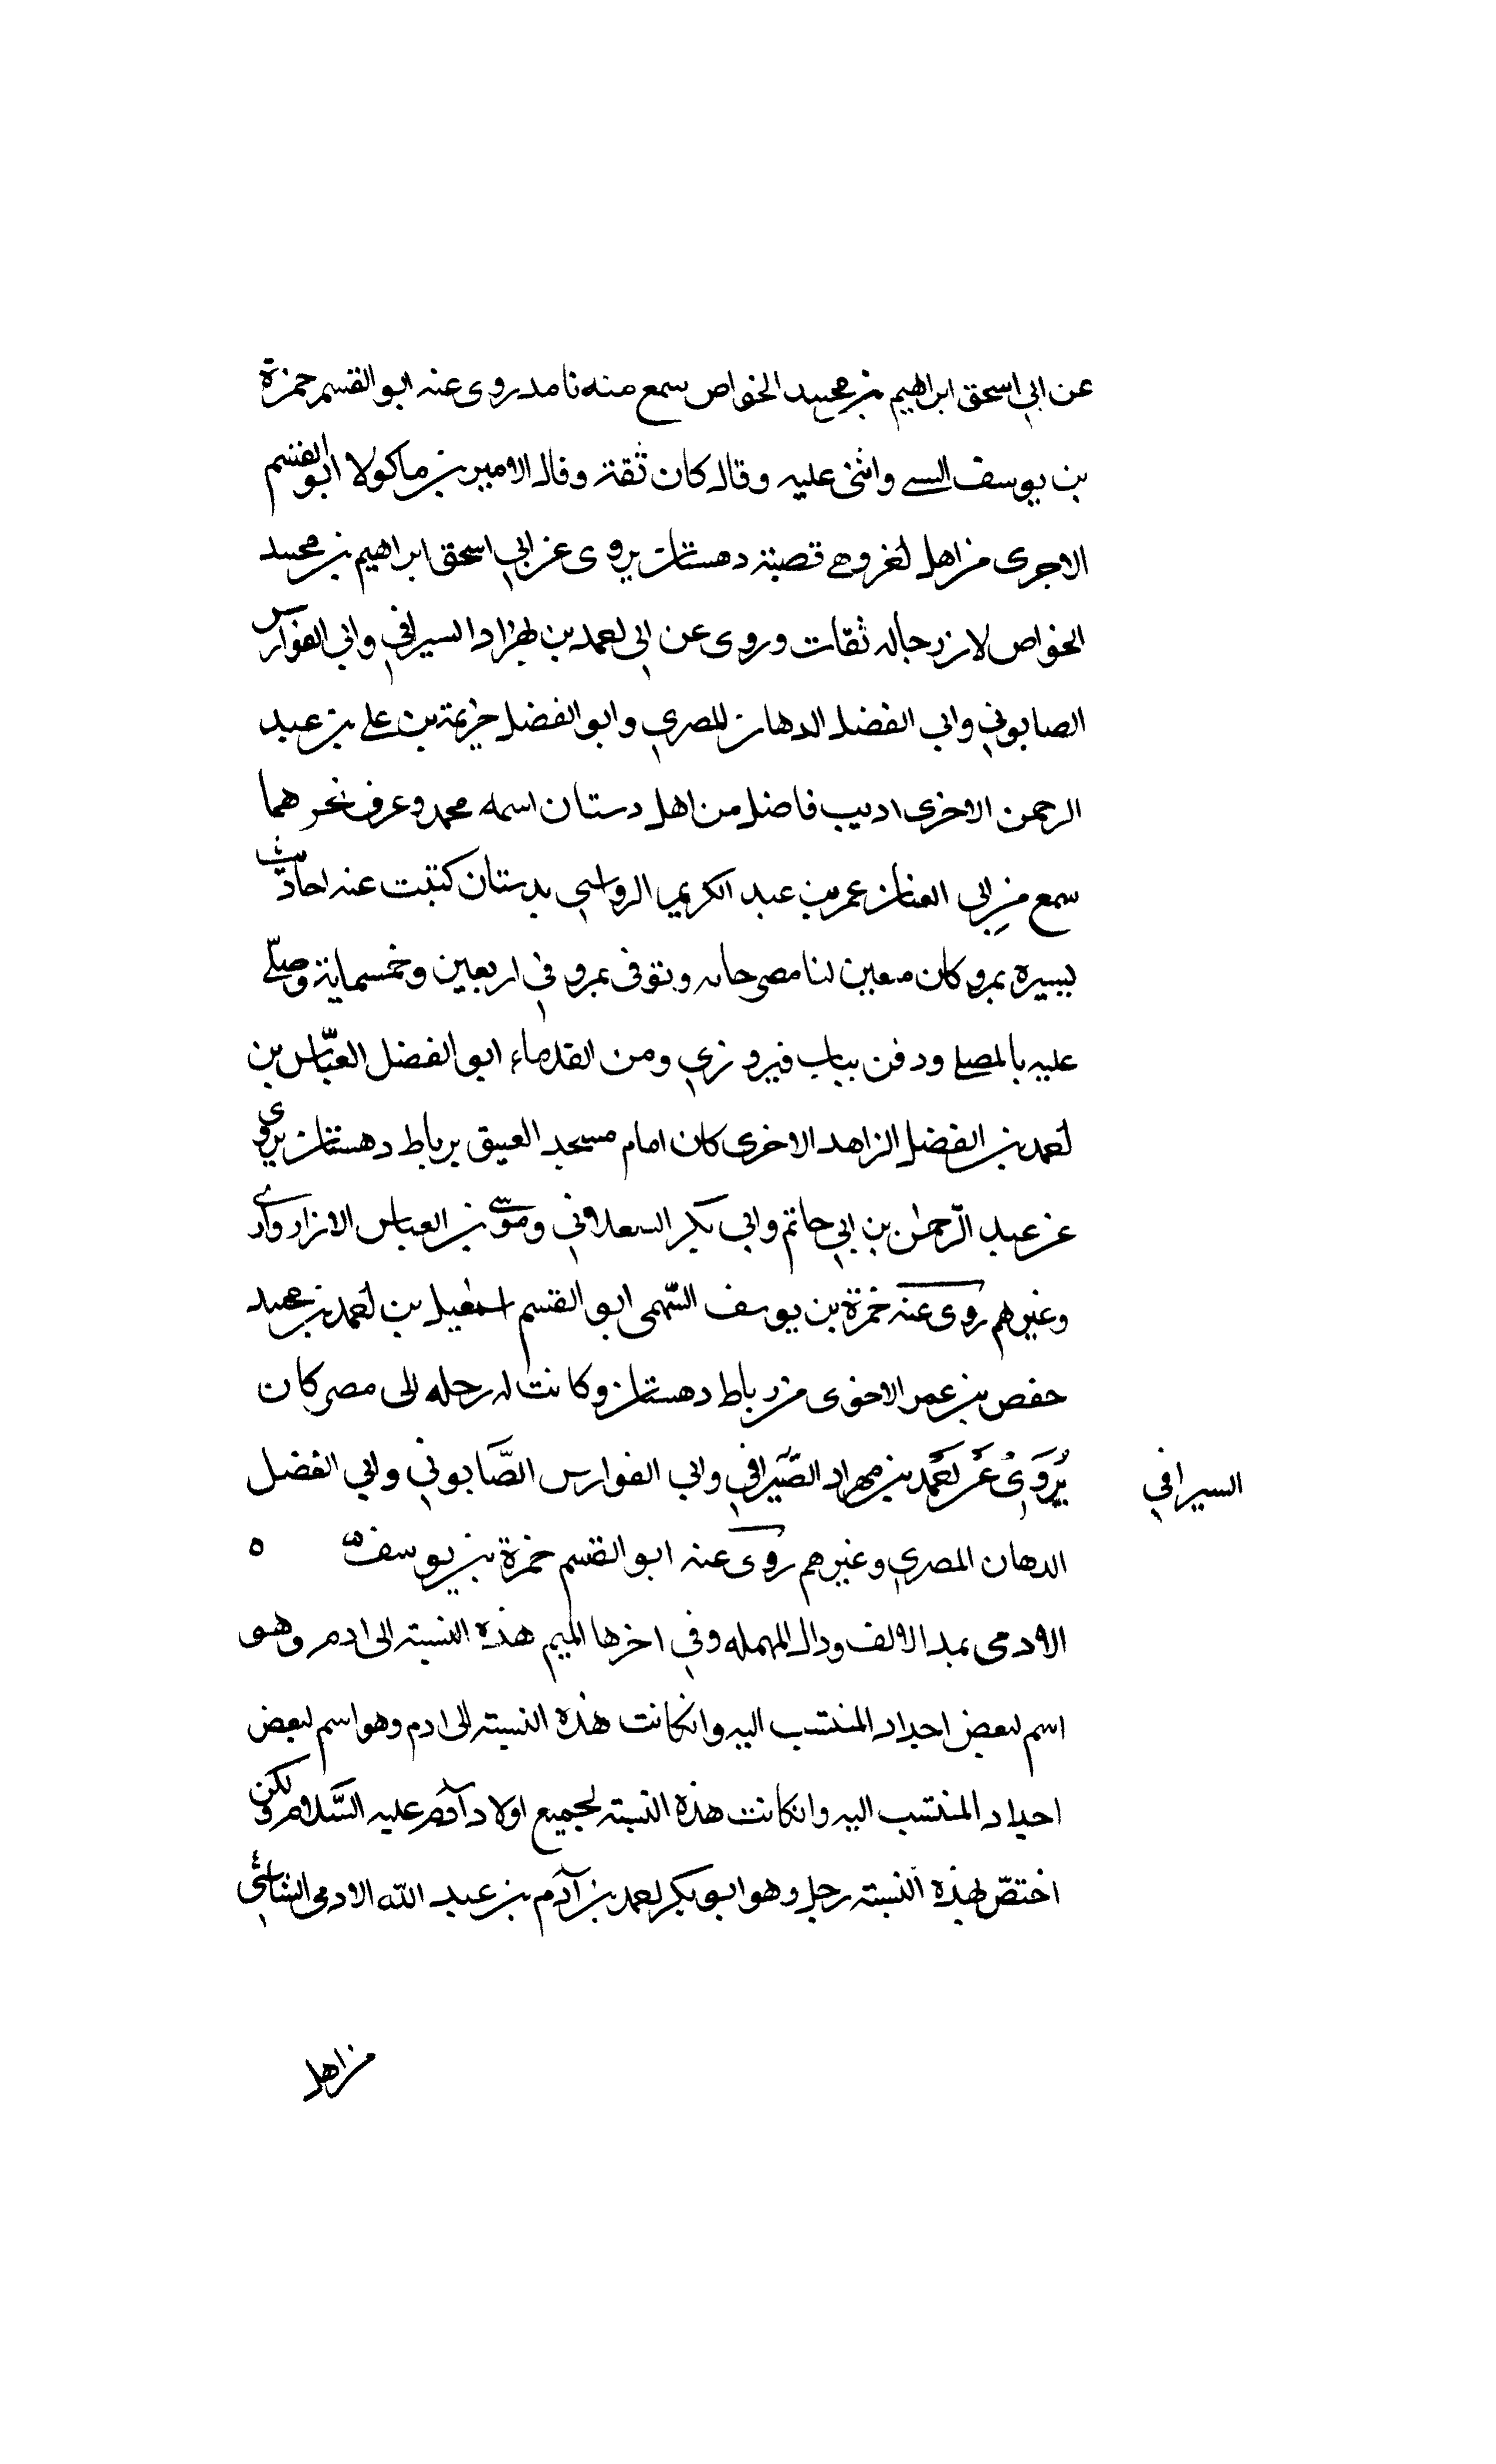 عن ابي اسحق ابراهيم بن محمد الخواص سمع منه نامد روى عنه ابو القسم حمزة
بن يوسف السهمي واثنى عليه وقال كان ثقة وقال الامير بن ماكولا ابو القسم
الاجرى من اهل اخر وهي قصبة دهستان يروى عن ابي اسحق ابراهيم بن محمد
الخواص لان رجاله ثقات وروى عن ابي احمد بن بهزاد السيرافي وابي الفوارس
الصابوني وابي الفضل الدهان المصري وابو الفضل خزيمة بن علي بن عبد
الرحمن الاخرى اديب فاضل من اهل دستان اسمه محمد وعرف هما
سمع من ابي الفتيان عمر بن عبد الكريم الرواسي بدستان كتبت عنه احاديث
يسيره بمرو كان معين لنا وتوفى بمرو في اربعين وخمسماية وصلى
عليه بالمصلى ودفن بباب فيروزي ومن القدماء ابو الفضل العباس بن
احمد بن الفضل الزاهد الاخرى كان امام مسجد العتيق برباط دهستان يروى
عن عبد الرحمن بن ابي حاتم وابي بكر السعلاني وموسى بن العباس الازاد وارى
وغيرهم روى عنه حمزة بن يوسف السهمى ابو القسم اسمعيل بن احمد بن محمد
حفص بن عمر الاخرى من رباط دهستان وكانت له رحله الى مصر كان
يروى عن احمد بن مهراد الصيرافي وابي الفوارس الصابوني وابي الفضل
السيرافي
الدهان المصري وغيرهم روى عنه ابو القسم حمزة بن يوسف ه
الادمى بمد الالف ودال المهمله وفي اخرها الميم هذه النسبة الى ادم وهو
اسم لبعض اجداد المنتسب اليه وانكانت هذه النسبة الى ادم وهو اسم لبعض
اجداد المنتسب اليه وانكانت هذه النسبة لجميع اولاد آدم عليه السلام ولكن
اختص بهذه النسبة رجل وهو ابو بكر احمد بن آدم بن عبد الله الادمى الشاشي
من اهل